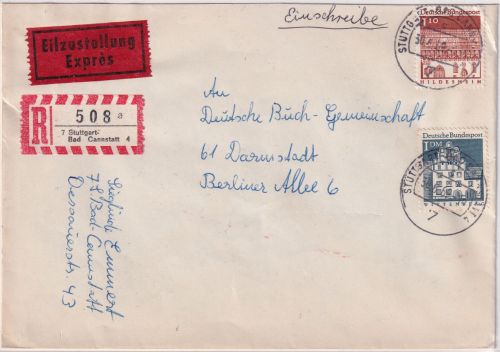 Einschreibe
Eilzustellung
Exprès
R
508 a
7 Stuttgart-
Bad Cannstatt 4
An
Deutsche Buch-Gemeinschaft
61 Darmstadt
Berliner Allee 6
Sieglinde Emmert
7 S Bad-Cannstatt
Dessauerstr. 43
Deutsche Bundespost
1.10
HILDESHEIM
Deutsche Bundespost
1 DM
STUTTGART
STUTTGART
7